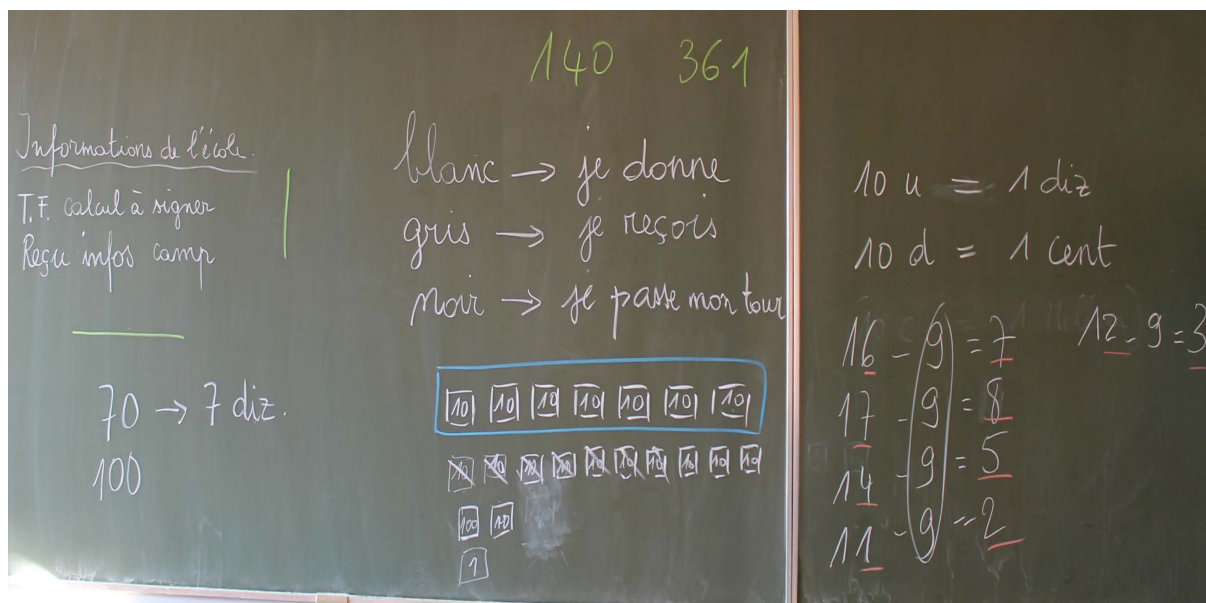 140 361
Informations de l'école.
T.F. calcul à signer
Reçu infos camp
70 → 7 diz.
100
blanc → je donne
gris → je reçois
noir → je passe mon tour
10 10 10 10 10 10 10
10 10 10 10 10 10 10 10 10 10
100 10
1
10 u = 1 diz
10 d = 1 cent
16 - 9 = 7
17 - 9 = 8
14 - 9 = 5
11 - 9 = 2
12 - 9 = 3